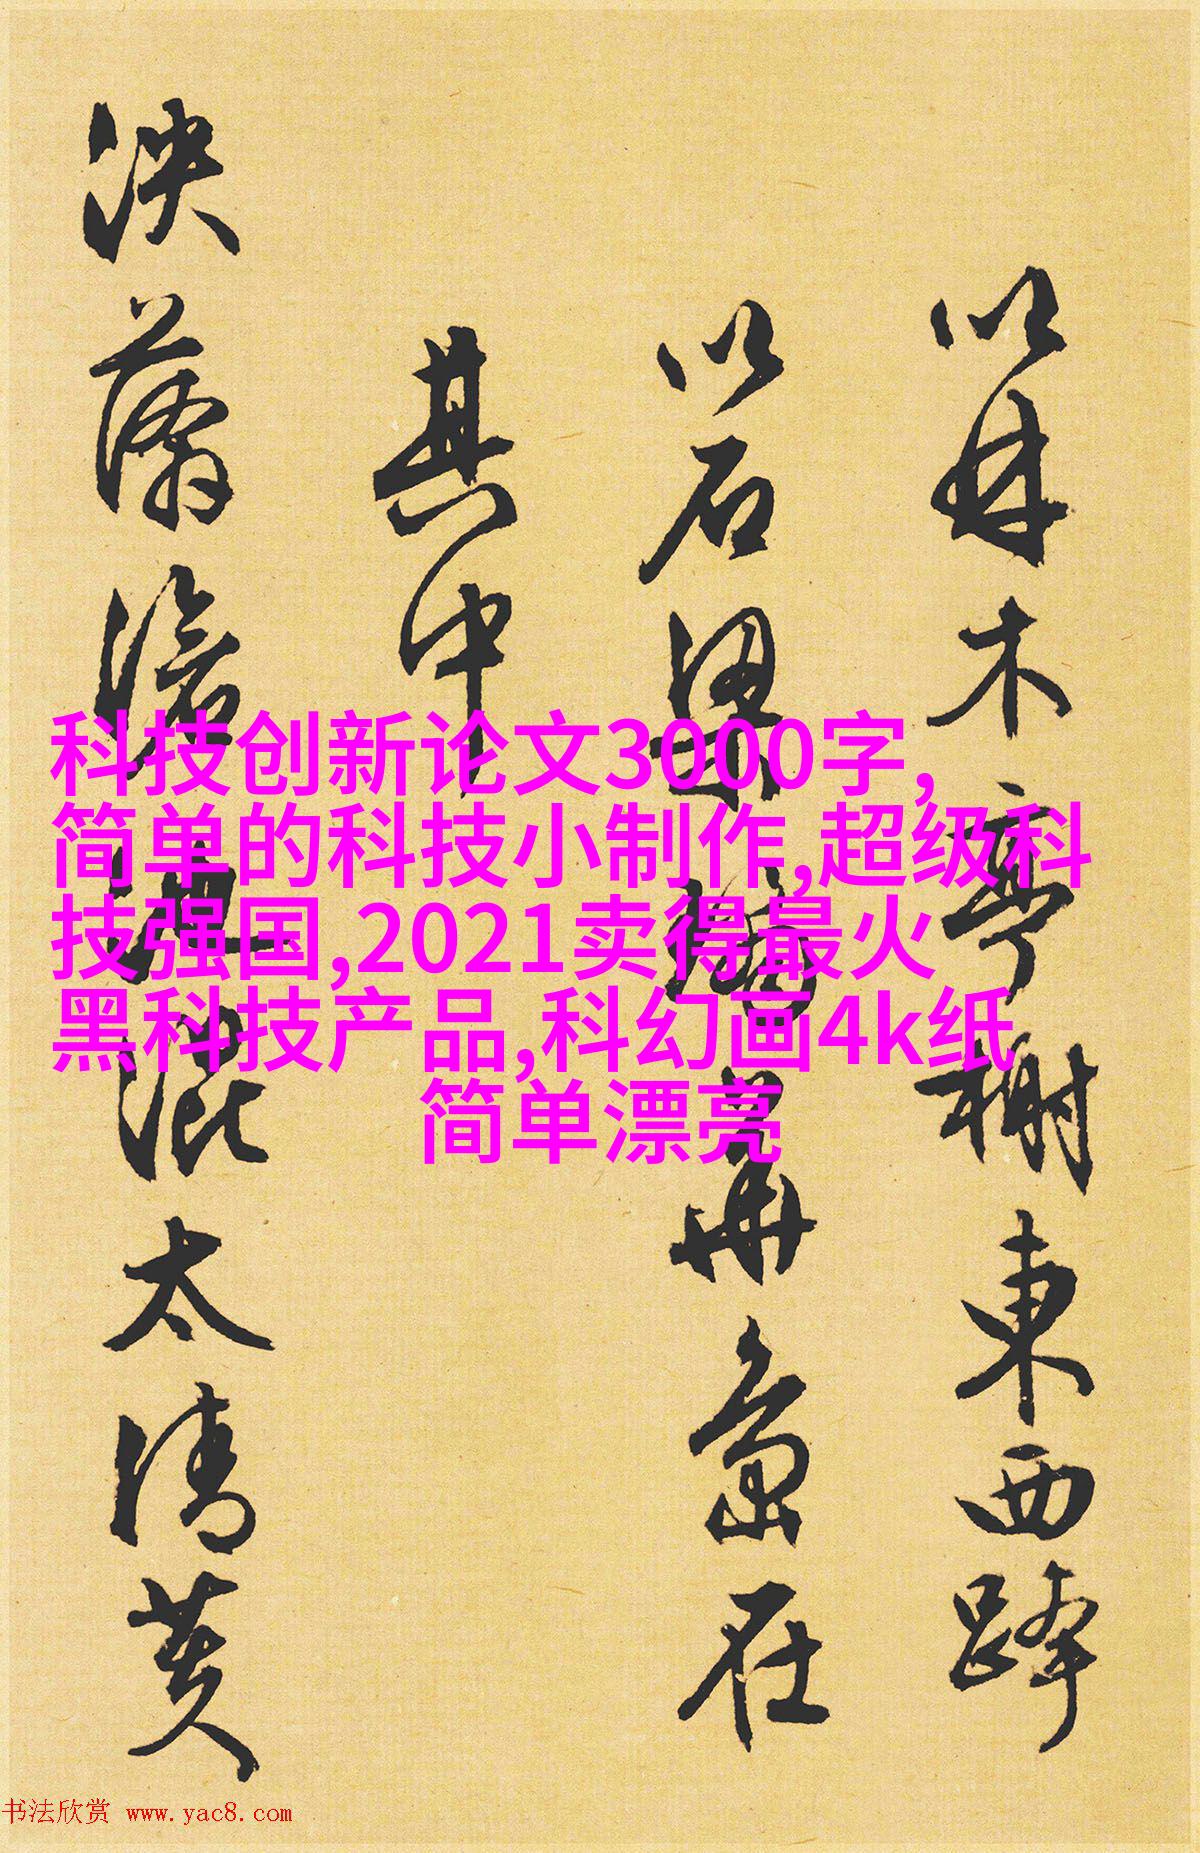 以木亭榭東西
以石梁在
其中
泱混太清
科技创新论文3000字,
简单的科技小制作,超级科
技强国,2021卖得最火
黑科技产品,科幻画4k纸
简单漂亮
书法欣赏 www.yac8.com